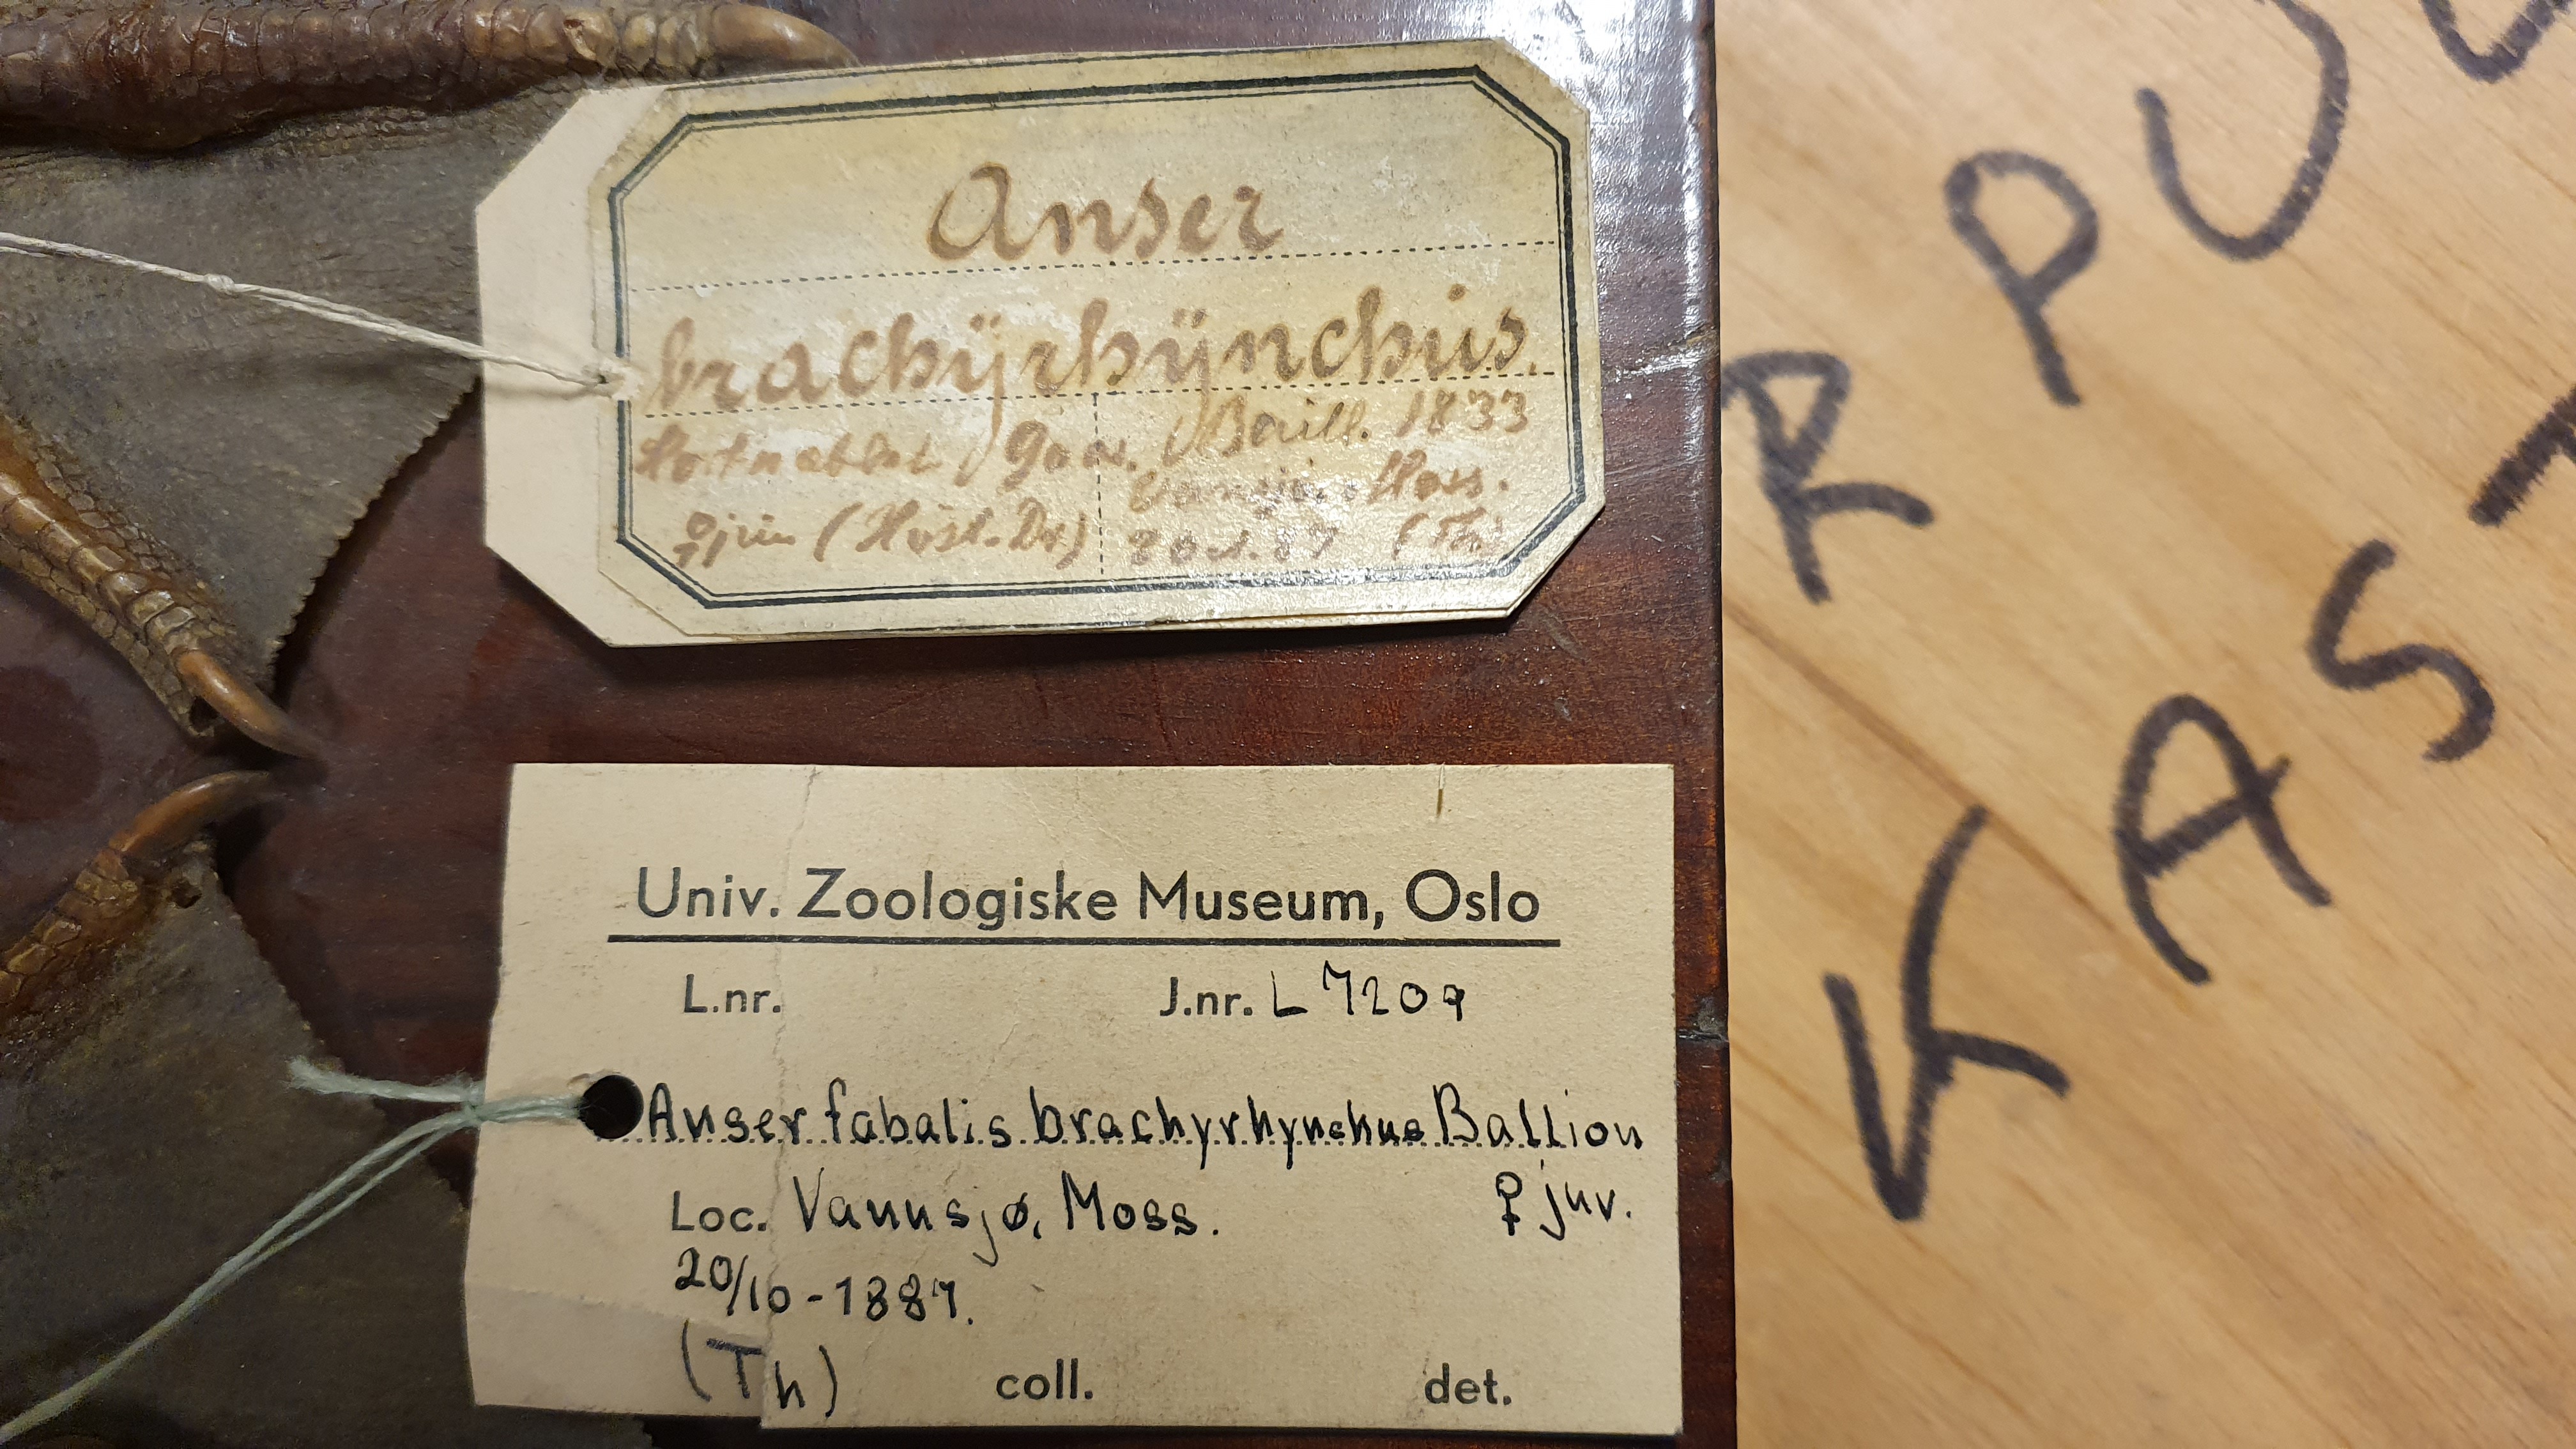 Anser
brachÿrhÿnchus.
Kortnæbbet Gaas. Baill. 1833
Vansjø. Moss.
♀ jun (Høst. Dr) 20 oct. 87 (Th)
Univ. Zoologiske Museum, Oslo
L.nr. J.nr. L 7209
Anser fabalis brachyrhynchus Ballion
Loc. Vannsjø, Moss. ♀ juv.
20/10-1887.
(Th) coll. det.
R P U
K A S T